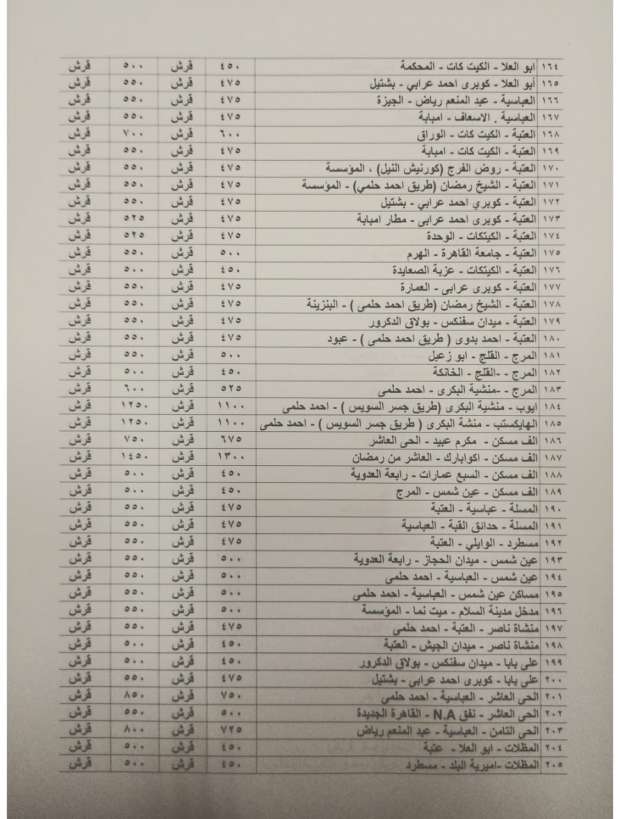 ١٦٤ ابو العلا - الكيت كات - المحكمة ٤٥٠ قرش ٥٠٠ قرش
١٦٥ أبو العلا - كوبرى احمد عرابي - بشتيل ٤٧٥ قرش ٥٥٠ قرش
١٦٦ العباسية - عبد المنعم رياض - الجيزة ٤٧٥ قرش ٥٥٠ قرش
١٦٧ العباسية . الاسعاف - امبابة ٤٧٥ قرش ٥٥٠ قرش
١٦٨ العتبة - الكيت كات - الوراق ٦٠٠ قرش ٧٠٠ قرش
١٦٩ العتبة - الكيت كات - امبابة ٤٧٥ قرش ٥٥٠ قرش
١٧٠ العتبة - روض الفرج (كورنيش النيل) ، المؤسسة ٤٧٥ قرش ٥٥٠ قرش
١٧١ العتبة - الشيخ رمضان (طريق احمد حلمي) - المؤسسة ٤٧٥ قرش ٥٥٠ قرش
١٧٢ العتبة - كوبري احمد عرابي - بشتيل ٤٧٥ قرش ٥٥٠ قرش
١٧٣ العتبة - كوبرى احمد عرابى - مطار امبابة ٤٧٥ قرش ٥٢٥ قرش
١٧٤ العتبة - الكيتكات - الوحدة ٤٧٥ قرش ٥٢٥ قرش
١٧٥ العتبة - جامعة القاهرة - الهرم ٥٠٠ قرش ٥٥٠ قرش
١٧٦ العتبة - الكيتكات - عزبة الصعايدة ٤٥٠ قرش ٥٠٠ قرش
١٧٧ العتبة - كوبرى عرابى - العمارة ٤٧٥ قرش ٥٥٠ قرش
١٧٨ العتبة - الشيخ رمضان (طريق احمد حلمى ) - البنزينة ٤٧٥ قرش ٥٥٠ قرش
١٧٩ العتبة - ميدان سفنكس - بولاق الدكرور ٤٧٥ قرش ٥٥٠ قرش
١٨٠ العتبة - احمد بدوى ( طريق احمد حلمى ) - عبود ٤٧٥ قرش ٥٥٠ قرش
١٨١ المرج - القلج - ابو زعبل ٥٠٠ قرش ٥٥٠ قرش
١٨٢ المرج - -القلج - الخانكة ٤٥٠ قرش ٥٠٠ قرش
١٨٣ المرج - -منشية البكرى - احمد حلمى ٥٢٥ قرش ٦٠٠ قرش
١٨٤ ايوب - منشية البكرى (طريق جسر السويس ) - احمد حلمى ١١٠٠ قرش ١٢٥٠ قرش
١٨٥ الهايكستب - منشة البكرى ( طريق جسر السويس ) - احمد حلمى ١١٠٠ قرش ١٢٥٠ قرش
١٨٦ الف مسكن - مكرم عبيد - الحى العاشر ٦٧٥ قرش ٧٥٠ قرش
١٨٧ الف مسكن - اكوابارك - العاشر من رمضان ١٣٠٠ قرش ١٤٥٠ قرش
١٨٨ الف مسكن - السبع عمارات - رابعة العدوية ٤٥٠ قرش ٥٠٠ قرش
١٨٩ الف مسكن - عين شمس - المرج ٤٥٠ قرش ٥٠٠ قرش
١٩٠ المسلة - عباسية - العتبة ٤٧٥ قرش ٥٥٠ قرش
١٩١ المسلة - حدائق القبة - العباسية ٤٧٥ قرش ٥٥٠ قرش
١٩٢ مسطرد - الوايلي - العتبة ٤٧٥ قرش ٥٥٠ قرش
١٩٣ عين شمس - ميدان الحجاز - رابعة العدوية ٥٠٠ قرش ٥٥٠ قرش
١٩٤ عين شمس - العباسية - احمد حلمى ٥٠٠ قرش ٥٥٠ قرش
١٩٥ مساكن عين شمس - العباسية - احمد حلمى ٥٠٠ قرش ٥٥٠ قرش
١٩٦ مدخل مدينة السلام - ميت نما - المؤسسة ٥٠٠ قرش ٥٥٠ قرش
١٩٧ منشاة ناصر - العتبة - احمد حلمى ٤٧٥ قرش ٥٥٠ قرش
١٩٨ منشاة ناصر - ميدان الجيش - العتبة ٤٥٠ قرش ٥٠٠ قرش
١٩٩ على بابا - ميدان سفنكس - بولاق الدكرور ٤٥٠ قرش ٥٠٠ قرش
٢٠٠ على بابا - كوبرى احمد عرابى - بشتيل ٤٧٥ قرش ٥٥٠ قرش
٢٠١ الحى العاشر - العباسية - احمد حلمى ٧٥٠ قرش ٨٥٠ قرش
٢٠٢ الحى العاشر - نفق N.A - القاهرة الجديدة ٥٠٠ قرش ٥٥٠ قرش
٢٠٣ الحى الثامن - العباسية - عبد المنعم رياض ٧٢٥ قرش ٨٠٠ قرش
٢٠٤ المظلات - ابو العلا - عتبة ٤٥٠ قرش ٥٠٠ قرش
٢٠٥ المظلات -اميرية البلد - مسطرد ٤٥٠ قرش ٥٠٠ قرش